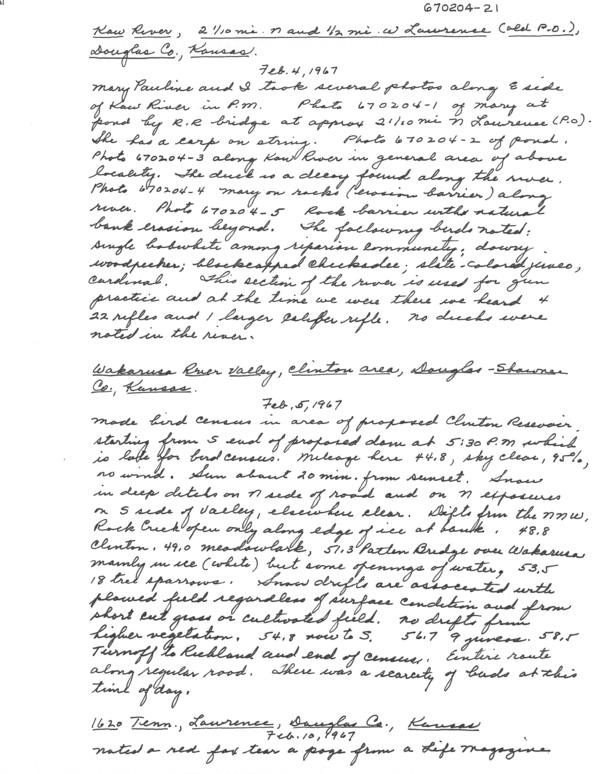 670204-21
Kaw River, 2 1/10 mi. N and 1/2 mi. W Lawrence (old P.O.),
Douglas Co., Kansas.
Feb. 4, 1967
Mary Pauline and I took several photos along E side
of Kaw River in P.M. Photo 670204-1 of Mary at
pond by R.R bridge at approx 2 1/10 mi N Lawrence (P.O).
She has a carp on string. Photo 670204-2 of pond.
Photo 670204-3 along Kaw River in general area of above
locality. The duck is a decoy found along the river.
Photo 670204-4 Mary on rocks (erosion barrier) along
river. Photo 670204-5 Rock barrier with natural
bank erosion beyond. The following birds noted:
single bobwhite among riparian community; downy
woodpecker; blackcapped chickadee; slate-colored junco,
cardinal. This section of the river is used for gun
practice and at the time we were there we heard 4
22 rifles and 1 larger rifle. No ducks were
noted in the river.
Wakarusa River Valley, Clinton area, Douglas-Shawnee
Co., Kansas.
Feb. 5, 1967
Made bird census in area of proposed Clinton Resevoir
starting from S end of proposed dam at 5:30 P.M which
is late for bird census. Mileage here 44.8, sky clear, 95%,
no wind. Sun about 20 min. from sunset. Snow
in deep ditches on N side of road and on N exposures
on S side of valley, elsewhere clear. Drifts from the NNW.
Rock Creek open only along edge of ice at bank. 48.8
Clinton. 49.0 meadowlark, 51.3 Patten Bridge over Wakarusa
mainly in ice (white) but some openings of water, 53.5
18 tree sparrows. Snow drifts are associated with
plowed field regardless of surface condition and from
short cut grass or cultivated field. No drifts from
higher vegetation. 54.8 now to S. 56.7 9 juncos. 58.5
Turnoff to Richland and end of census. Entire route
along regular road. There was a scarcity of birds at this
time of day.
1620 Tenn., Lawrence, Douglas Co., Kansas
Feb. 10, 1967
noted a red fox tear a page from a Life Magazine